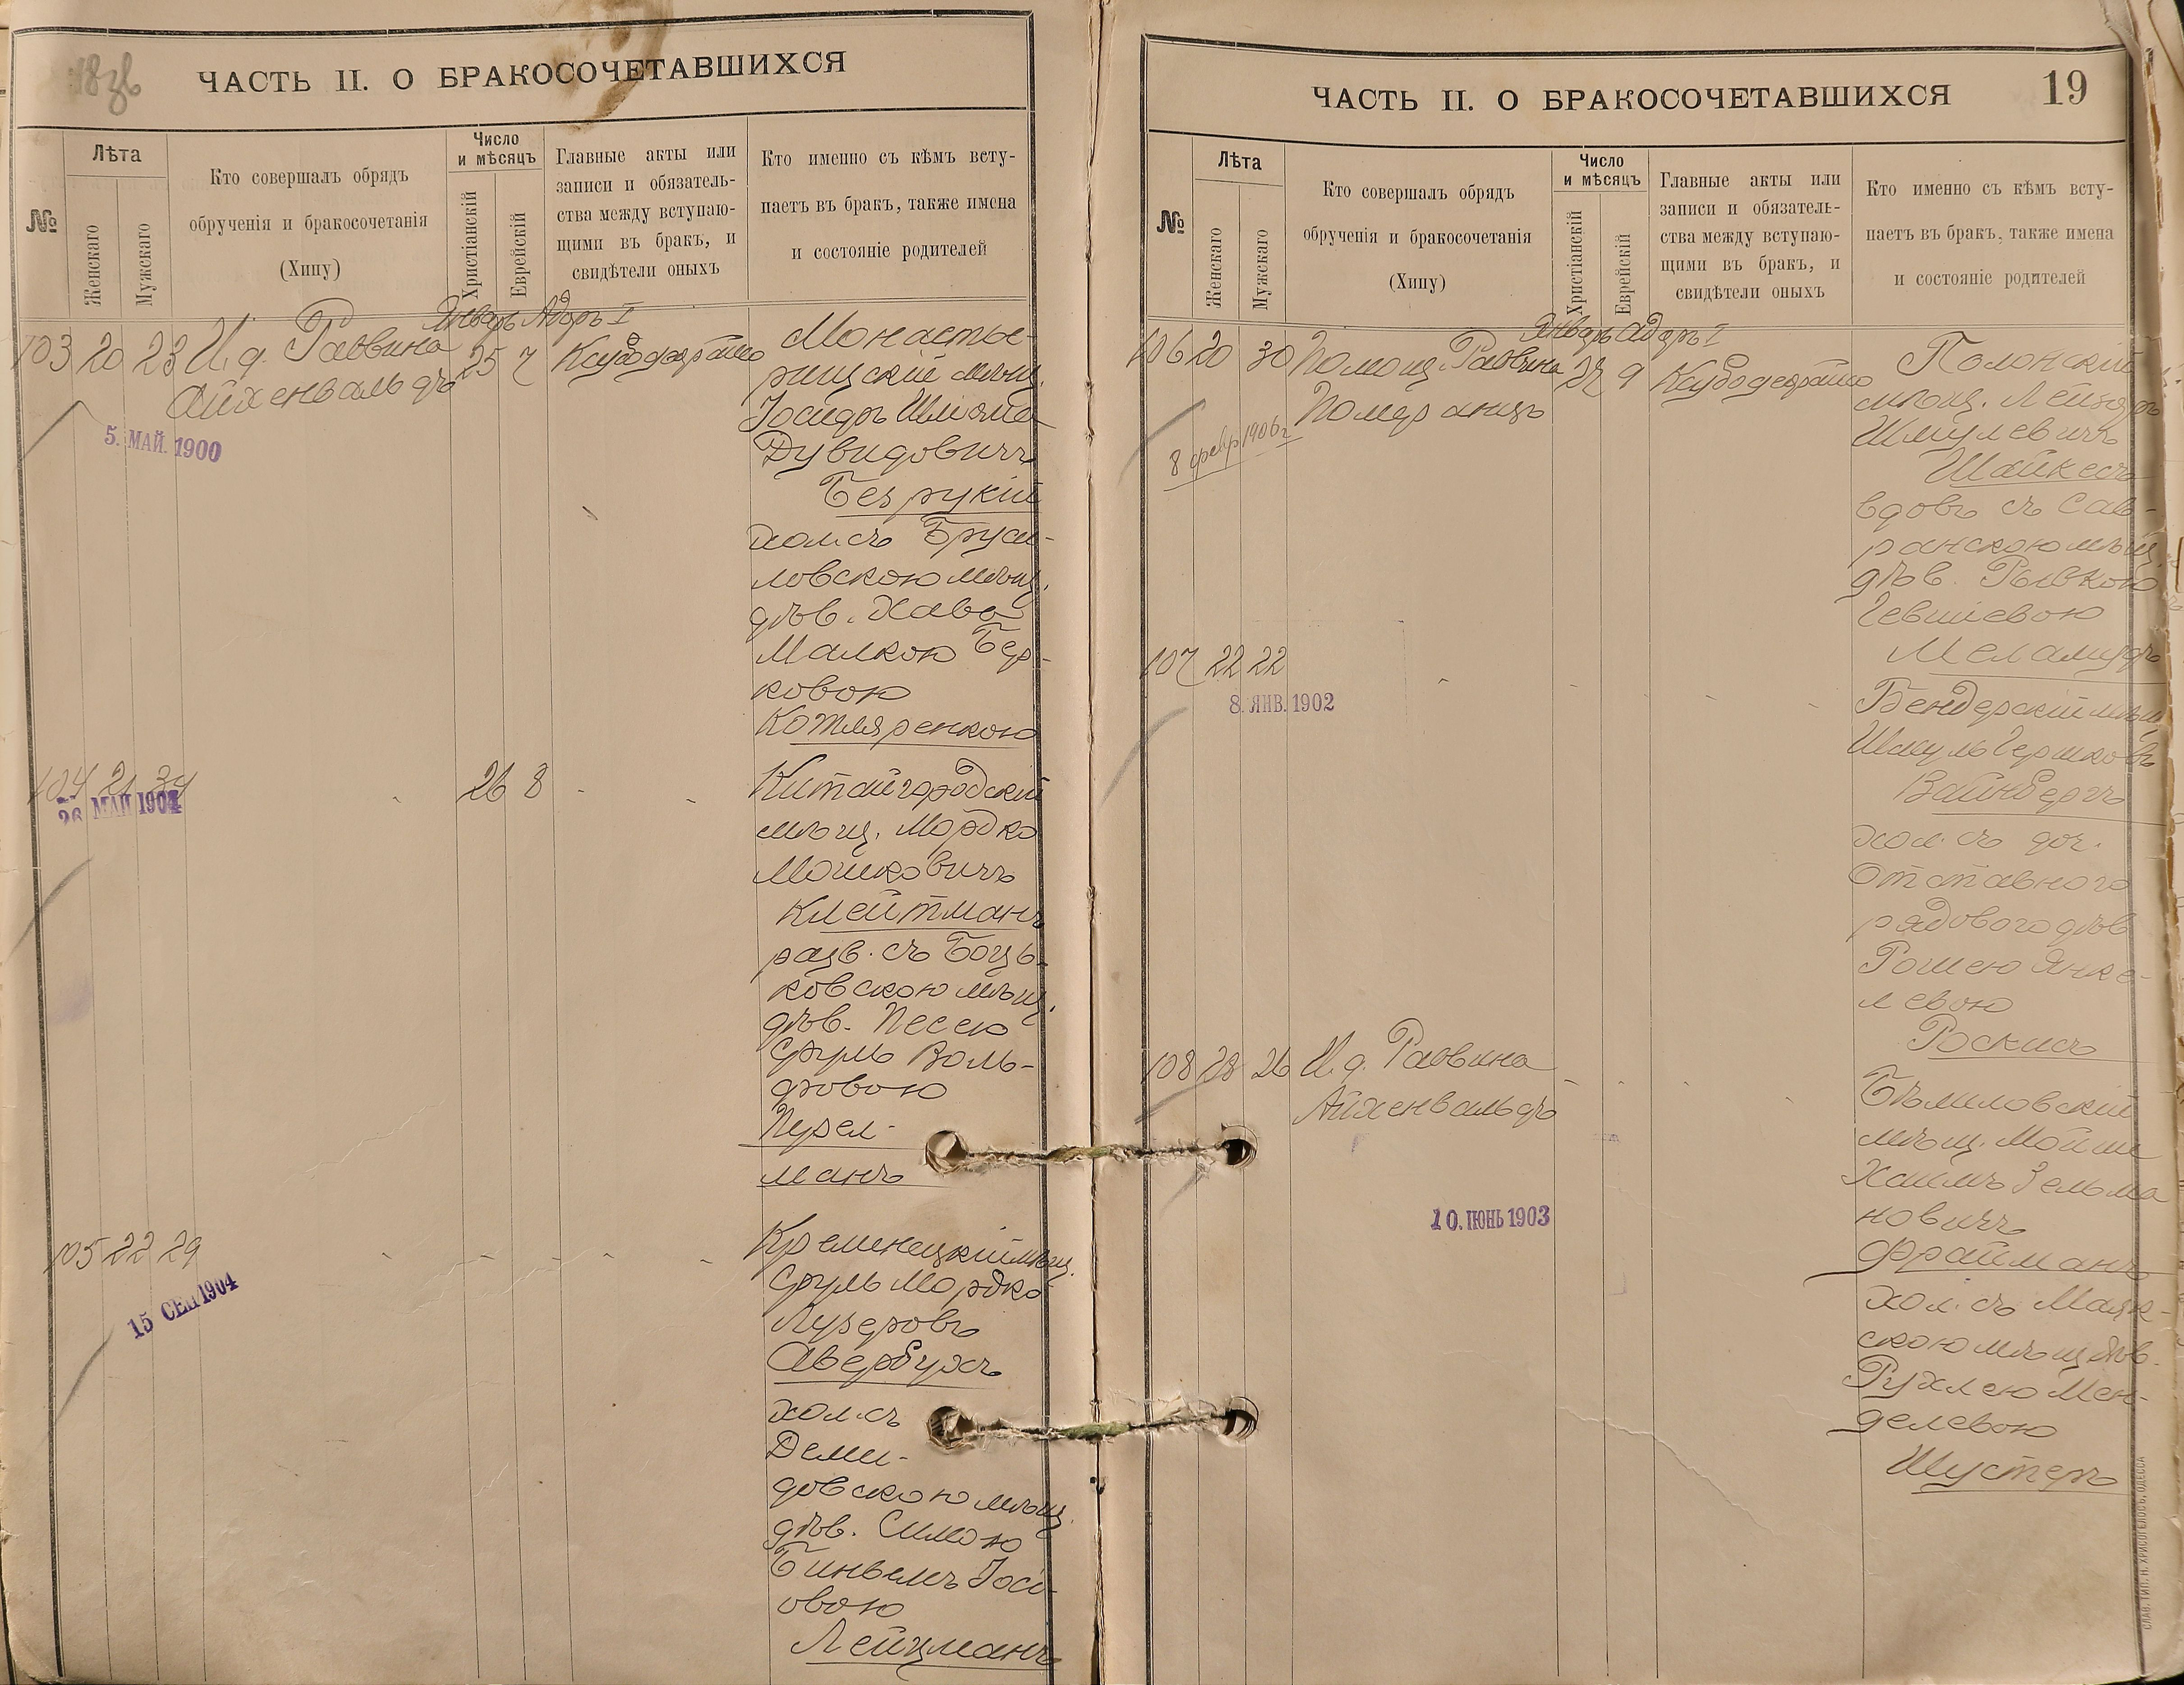 18 об
ЧАСТЬ II. О БРАКОСОЧЕТАВШИХСЯ
№
Лѣта
Женскаго
Мужскаго
Кто совершалъ обрядъ
обрученія и бракосочетанія
(Хипу)
Число
и мѣсяцъ
Христіанскій
Еврейскій
Главные акты или
записи и обязатель-
ства между вступаю-
щими въ бракъ, и
свидѣтели оныхъ
Кто именно съ кѣмъ всту-
паетъ въ бракъ, также имена
и состояніе родителей
Январь Адаръ I
103 20 23 И. д. Раввина 25 7
Айхенвальдъ
5. МАЙ. 1900
Монасты-
рищскій мѣщ.
Іосифъ Шлиома
Дувидовичъ
Безрукій
хол. съ Бруси-
ловскою мѣщ.
дѣв. Хава
Малкою Бер-
ковою
Котляренкою
104 21 34 26 8
26 МАЙ 1904
Китайгородскій
мѣщ. Мордко
Мошковичъ
Клейтманъ
разв. съ Боцьковскою мѣщ.
дѣв. Песею
Сруль Воль-
фовою
Перел-
манъ
105 22 29
15 СЕН 1904
Кременецкій мѣщ.
Сруль Мордко
Лузеровъ
Авербухъ
хол. съ
Деми-
довскою мѣщ.
дѣв. Симою
Бинвемъ Іоси-
овою
Лейцманъ
ЧАСТЬ II. О БРАКОСОЧЕТАВШИХСЯ
19
№
Лѣта
Женскаго
Мужскаго
Кто совершалъ обрядъ
обрученія и бракосочетанія
(Хипу)
Число
и мѣсяцъ
Христіанскій
Еврейскій
Главные акты или
записи и обязатель-
ства между вступаю-
щими въ бракъ, и
свидѣтели оныхъ
Кто именно съ кѣмъ всту-
паетъ въ бракъ, также имена
и состояніе родителей
Январь Адаръ I
106 20 30 Помощ. Раввина 27 9
Померанцъ
8 февр 1906 г
Полонскій
мѣщ. Лейзоръ
Шмулевичъ
Шайкесъ
вдовъ съ Сав-
ранскою мѣщ.
дѣв. Рывкою
Гевшіевою
Меламудъ
107 22 22
8. ЯНВ. 1902
Бендерскій мѣщ.
Шмуль Гершковъ
Вайнбергъ
хол. съ доч.
Отставного
рядового дѣв
Рошею Янке-
левою
Роскисъ
108 28 26 И. д. Раввина
Айхенвальдъ
10. ІЮНЬ 1903
Бѣлиловскій
мѣщ. Мойше
Хаимъ Зельма
новичъ
Фрайманъ
хол. съ Маяк-
скою мѣщ дѣв.
Рухлею Мен-
делевою
Шустеръ
СЛАВ. ТИП. Н. ХРИСОГЕЛОСЪ, ОДЕССА